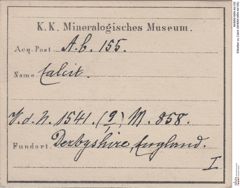 K. K. Mineralogisches Museum.
Acq. Post A.b. 155.
Name Calcit.
V.d.N. 1541. (2) M. 858.
Fundort Derbyshire, England.
I